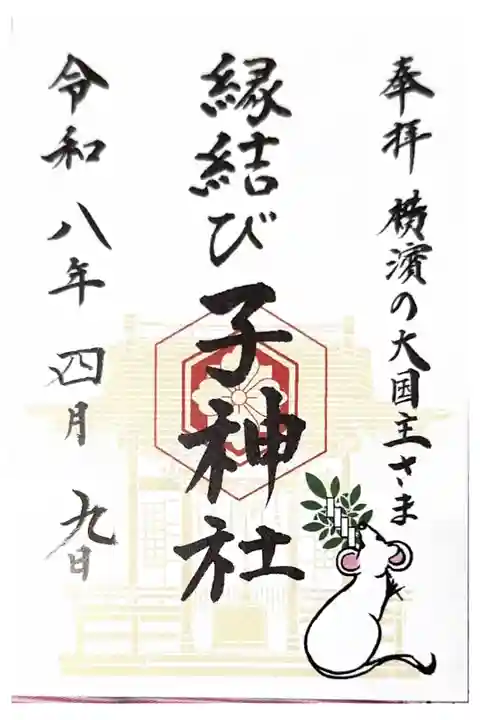 奉拝 横濱の大国主さま
縁結び子神社
令和八年四月九日